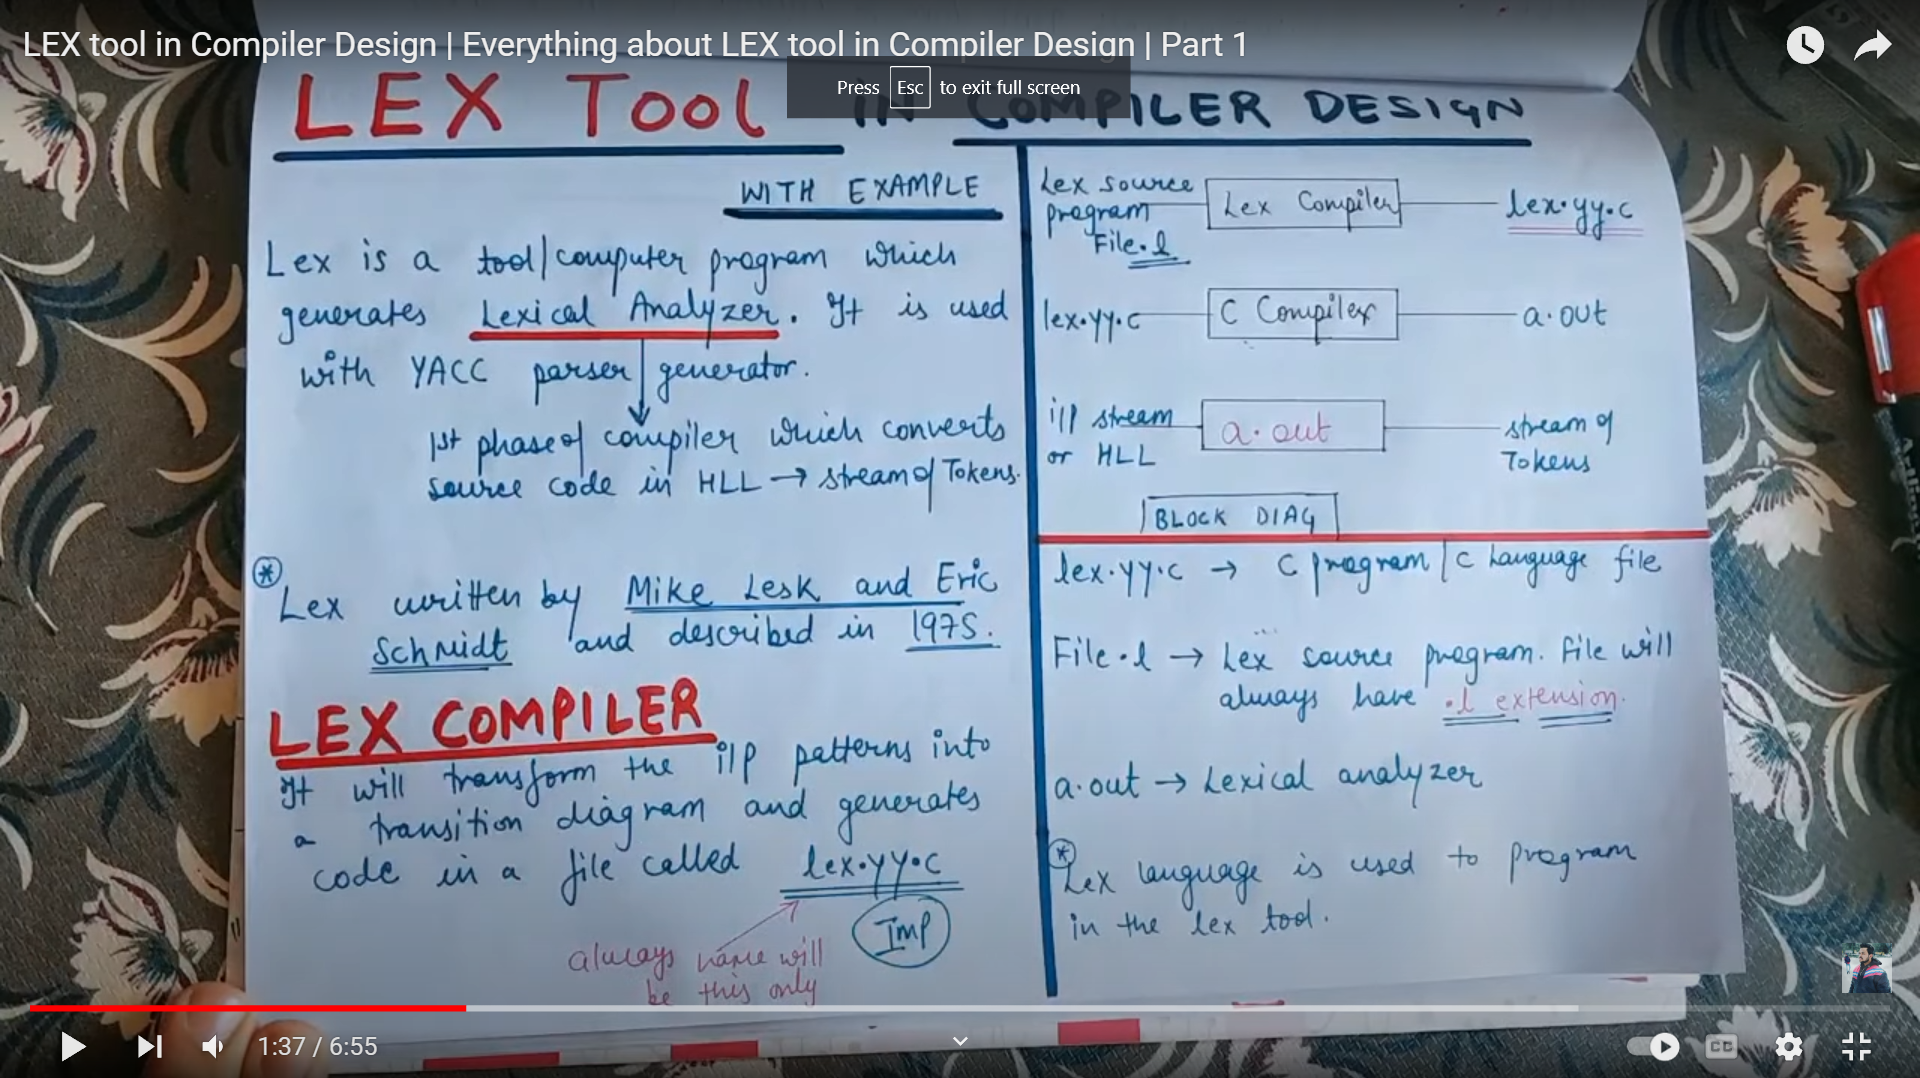 LEX tool in Compiler Design | Everything about LEX tool in Compiler Design | Part 1
Press Esc to exit full screen
LEX Tool IN COMPILER DESIGN
WITH EXAMPLE
Lex is a tool/computer program which
generates Lexical Analyzer. It is used
with YACC parser generator.
1st phase of compiler which converts
source code in HLL → stream of Tokens.
* Lex written by Mike Lesk and Eric
Schmidt and described in 1975.
LEX COMPILER
It will transform the i/p patterns into
a transition diagram and generates
code in a file called lex.yy.c
Imp
always name will
be this only
Lex source
program
File.l
Lex Compiler
lex.yy.c
lex.yy.c
C Compiler
a.out
i/p stream
or HLL
a.out
stream of
Tokens
BLOCK DIAG
lex.yy.c → C program / C Language file
File.l → Lex source program. File will
always have .l extension.
a.out → Lexical analyzer
* Lex language is used to program
in the lex tool.
1:37 / 6:55
CC